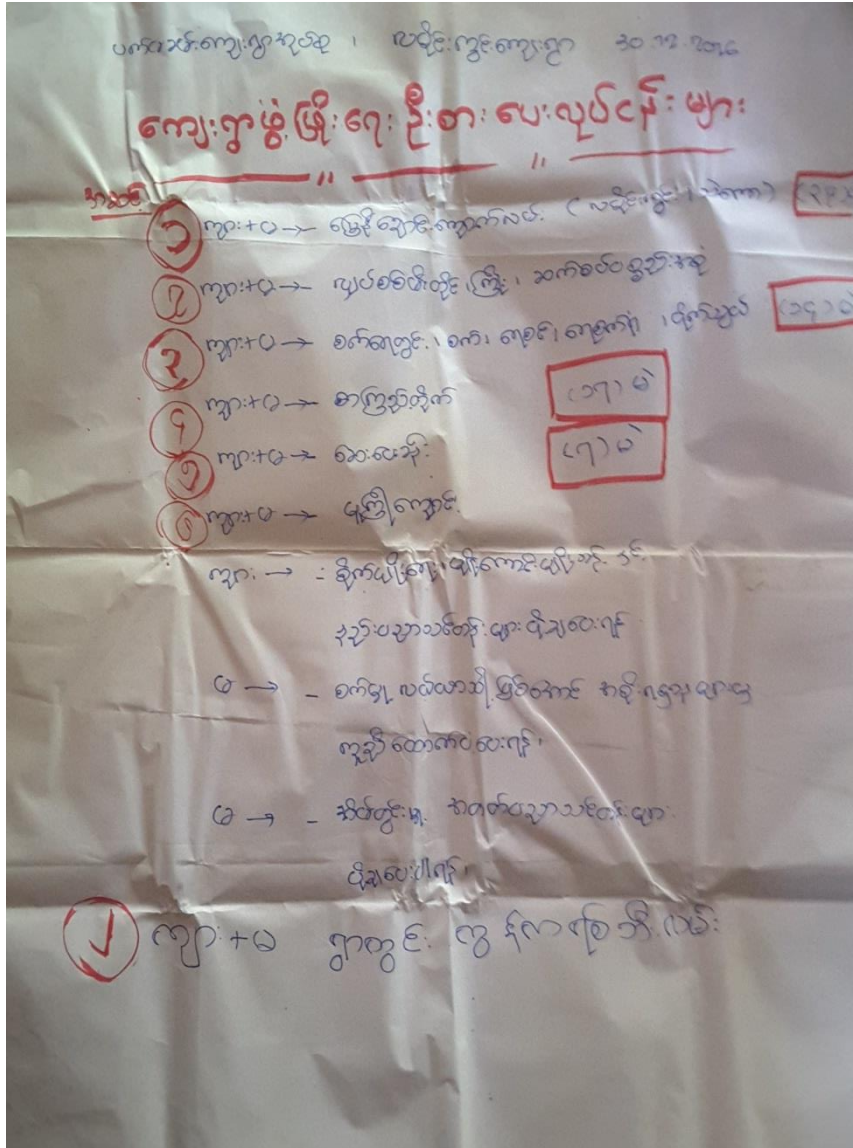 ကျေးရွာအုပ်စု ၊ လမိုင်းကွင်းကျေးရွာ 30.12.2016
ကျေးရွာဖွံ့ဖြိုးရေး ဦးစားပေးလုပ်ငန်းများ
အဆင့်
၁ ကျား+မ → မြေနီချောင်းကျောက်လမ်း (လမိုင်းကွင်း၊
၂ ကျား+မ → လျှပ်စစ်မီးတိုင်၊ ကြိုး၊ ဆက်စပ်ပစ္စည်းအစုံ
၃ ကျား+မ → စက်ရေတွင်း၊ စက်၊ ရေစင်၊ ၊ ပိုက်သွယ် (၁၄) မဲ
၄ ကျား+မ → စာကြည့်တိုက် (၁၇) မဲ
၅ ကျား+မ → ဆေးပေးခန်း (၇) မဲ
၆ ကျား+မ → မူကြိုကျောင်း
ကျား → - စိုက်ပျိုးရေး မျိုးကောင်းမျိုးသန့် နှင့်
နည်းပညာသင်တန်းများ ပို့ချပေးရန်
မ → - စက်မှု လယ်ယာသို့ ဖြစ်အောင် အစိုးရဌာနများမှ
ကူညီထောက်ပံ့ပေးရန်၊
မ → - အိမ်တွင်းမှု အတတ်ပညာသင်တန်းများ
ပို့ချပေးပါရန်၊
၂ ကျား+မ ရွာတွင်း ကွန်ကရစ် လမ်း